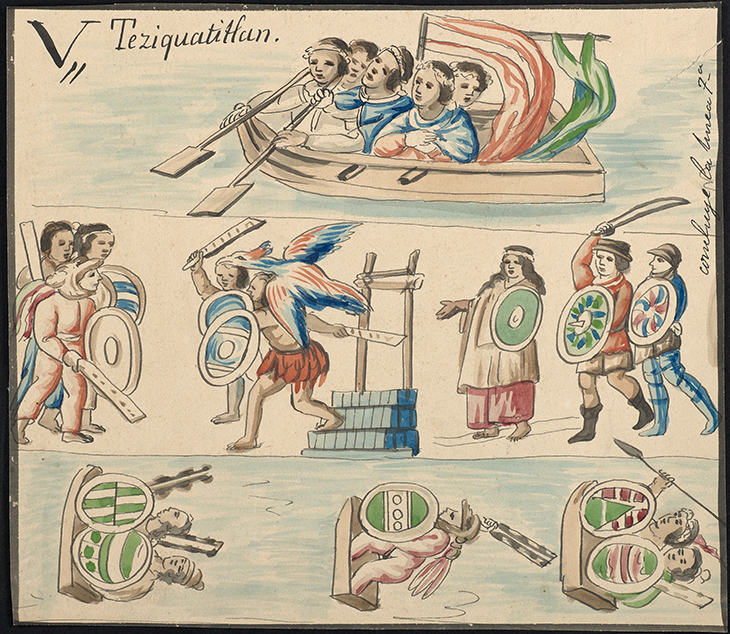 V,, Teziquatitlan.
concluye la linea 7a